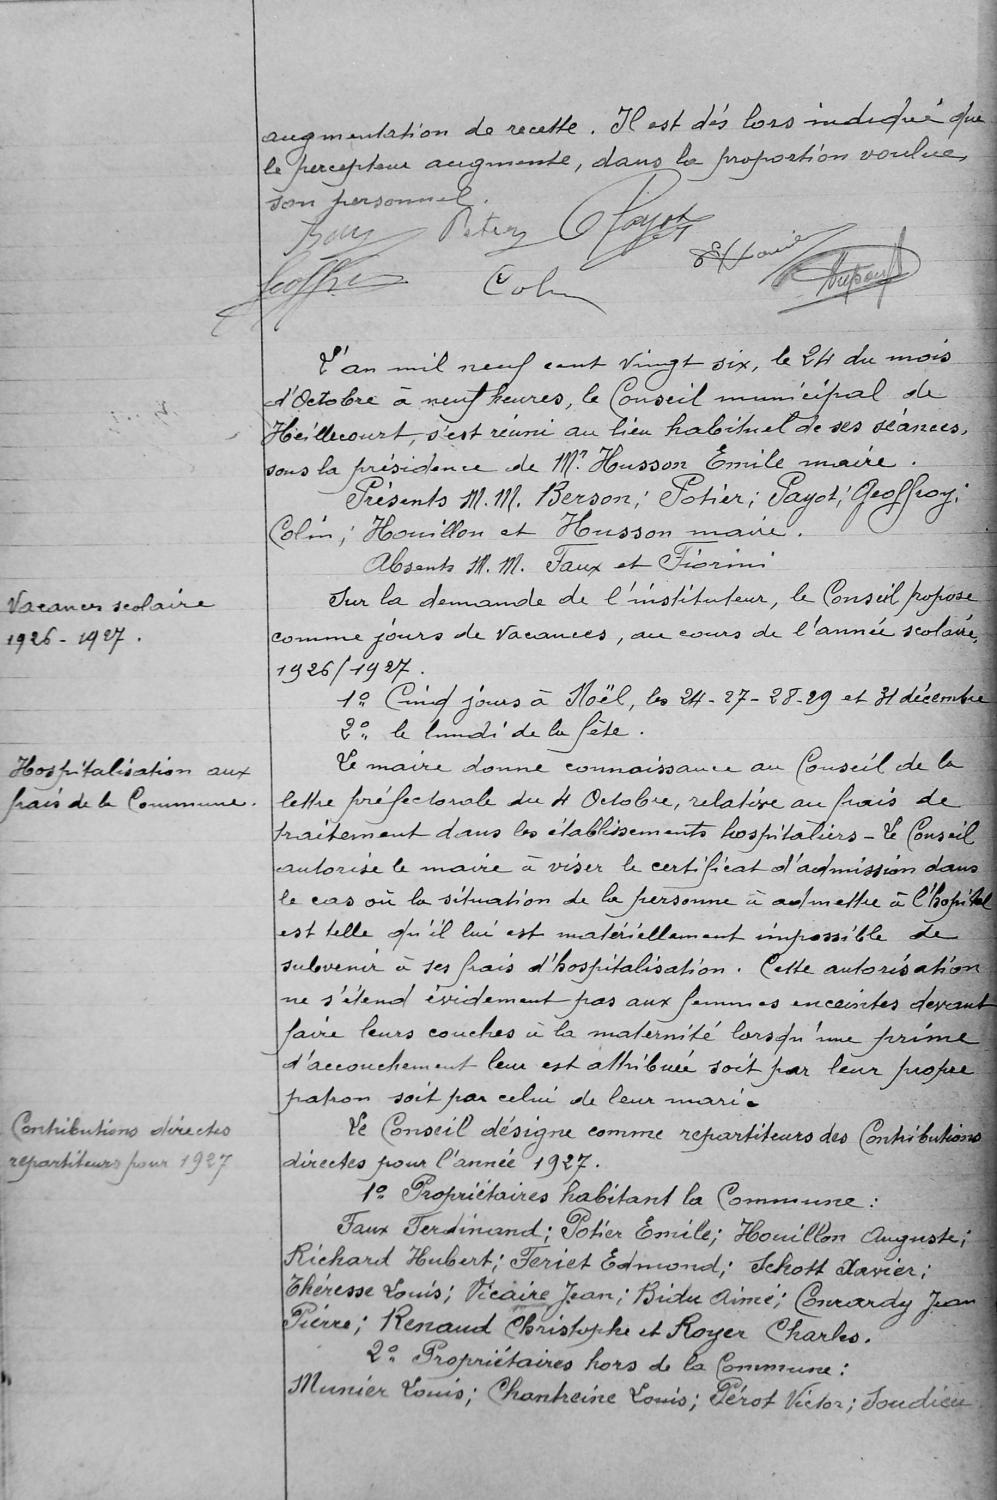 augmentation de recette. Il est dès lors indiqué que
le percepteur augmente, dans la proportion voulue,
son personnel.
Potier Payot
Geoffroy Colin
L'an mil neuf cent vingt six, le 24 du mois
d'Octobre à neuf heures, le Conseil municipal de
Heillecourt, s'est réuni au lieu habituel de ses séances,
sous la présidence de Mr Husson Emile maire.
Présents M.M. Berson; Potier; Payot; Geoffroy;
Colin; Houillon et Husson maire.
Absents M.M. Faux et Fiorini
Vacances scolaire
1926-1927.
Sur la demande de l'instituteur, le Conseil propose
comme jours de vacances, au cours de l'année scolaire,
1926/1927.
1º Cinq jours à Noël, les 24-27-28-29 et 31 décembre
2º le lundi de la fête.
Hospitalisation aux
frais de la Commune.
Le maire donne connaissance au Conseil de la
lettre préfectorale du 4 Octobre, relative au frais de
traitement dans les établissements hospitaliers - Le Conseil
autorise le maire à viser le certificat d'admission dans
le cas où la situation de la personne à admettre à l'hopital
est telle qu'il lui est matériellement impossible de
subvenir à ses frais d'hospitalisation. Cette autorisation
ne s'étend évidement pas aux femmes enceintes devant
faire leurs couches à la maternité lorsqu'une prime
d'accouchement leur est attribuée soit par leur propre
patron soit par celui de leur mari.
Contributions directes
répartiteurs pour 1927
Le Conseil désigne comme repartiteurs des Contributions
directes pour l'année 1927.
1º Propriétaires habitant la Commune:
Faux Ferdinand; Potier Emile; Houillon Auguste;
Richard Hubert; Feriet Edmond; Schott Xavier;
Théresse Louis; Vicaire Jean; Bidu Aimé; Conrardy Jean
Pierre; Renaud Christophe et Royer Charles.
2º Propriétaires hors de la Commune:
Munier Louis; Chantreine Louis; Pérot Victor; Soudieu